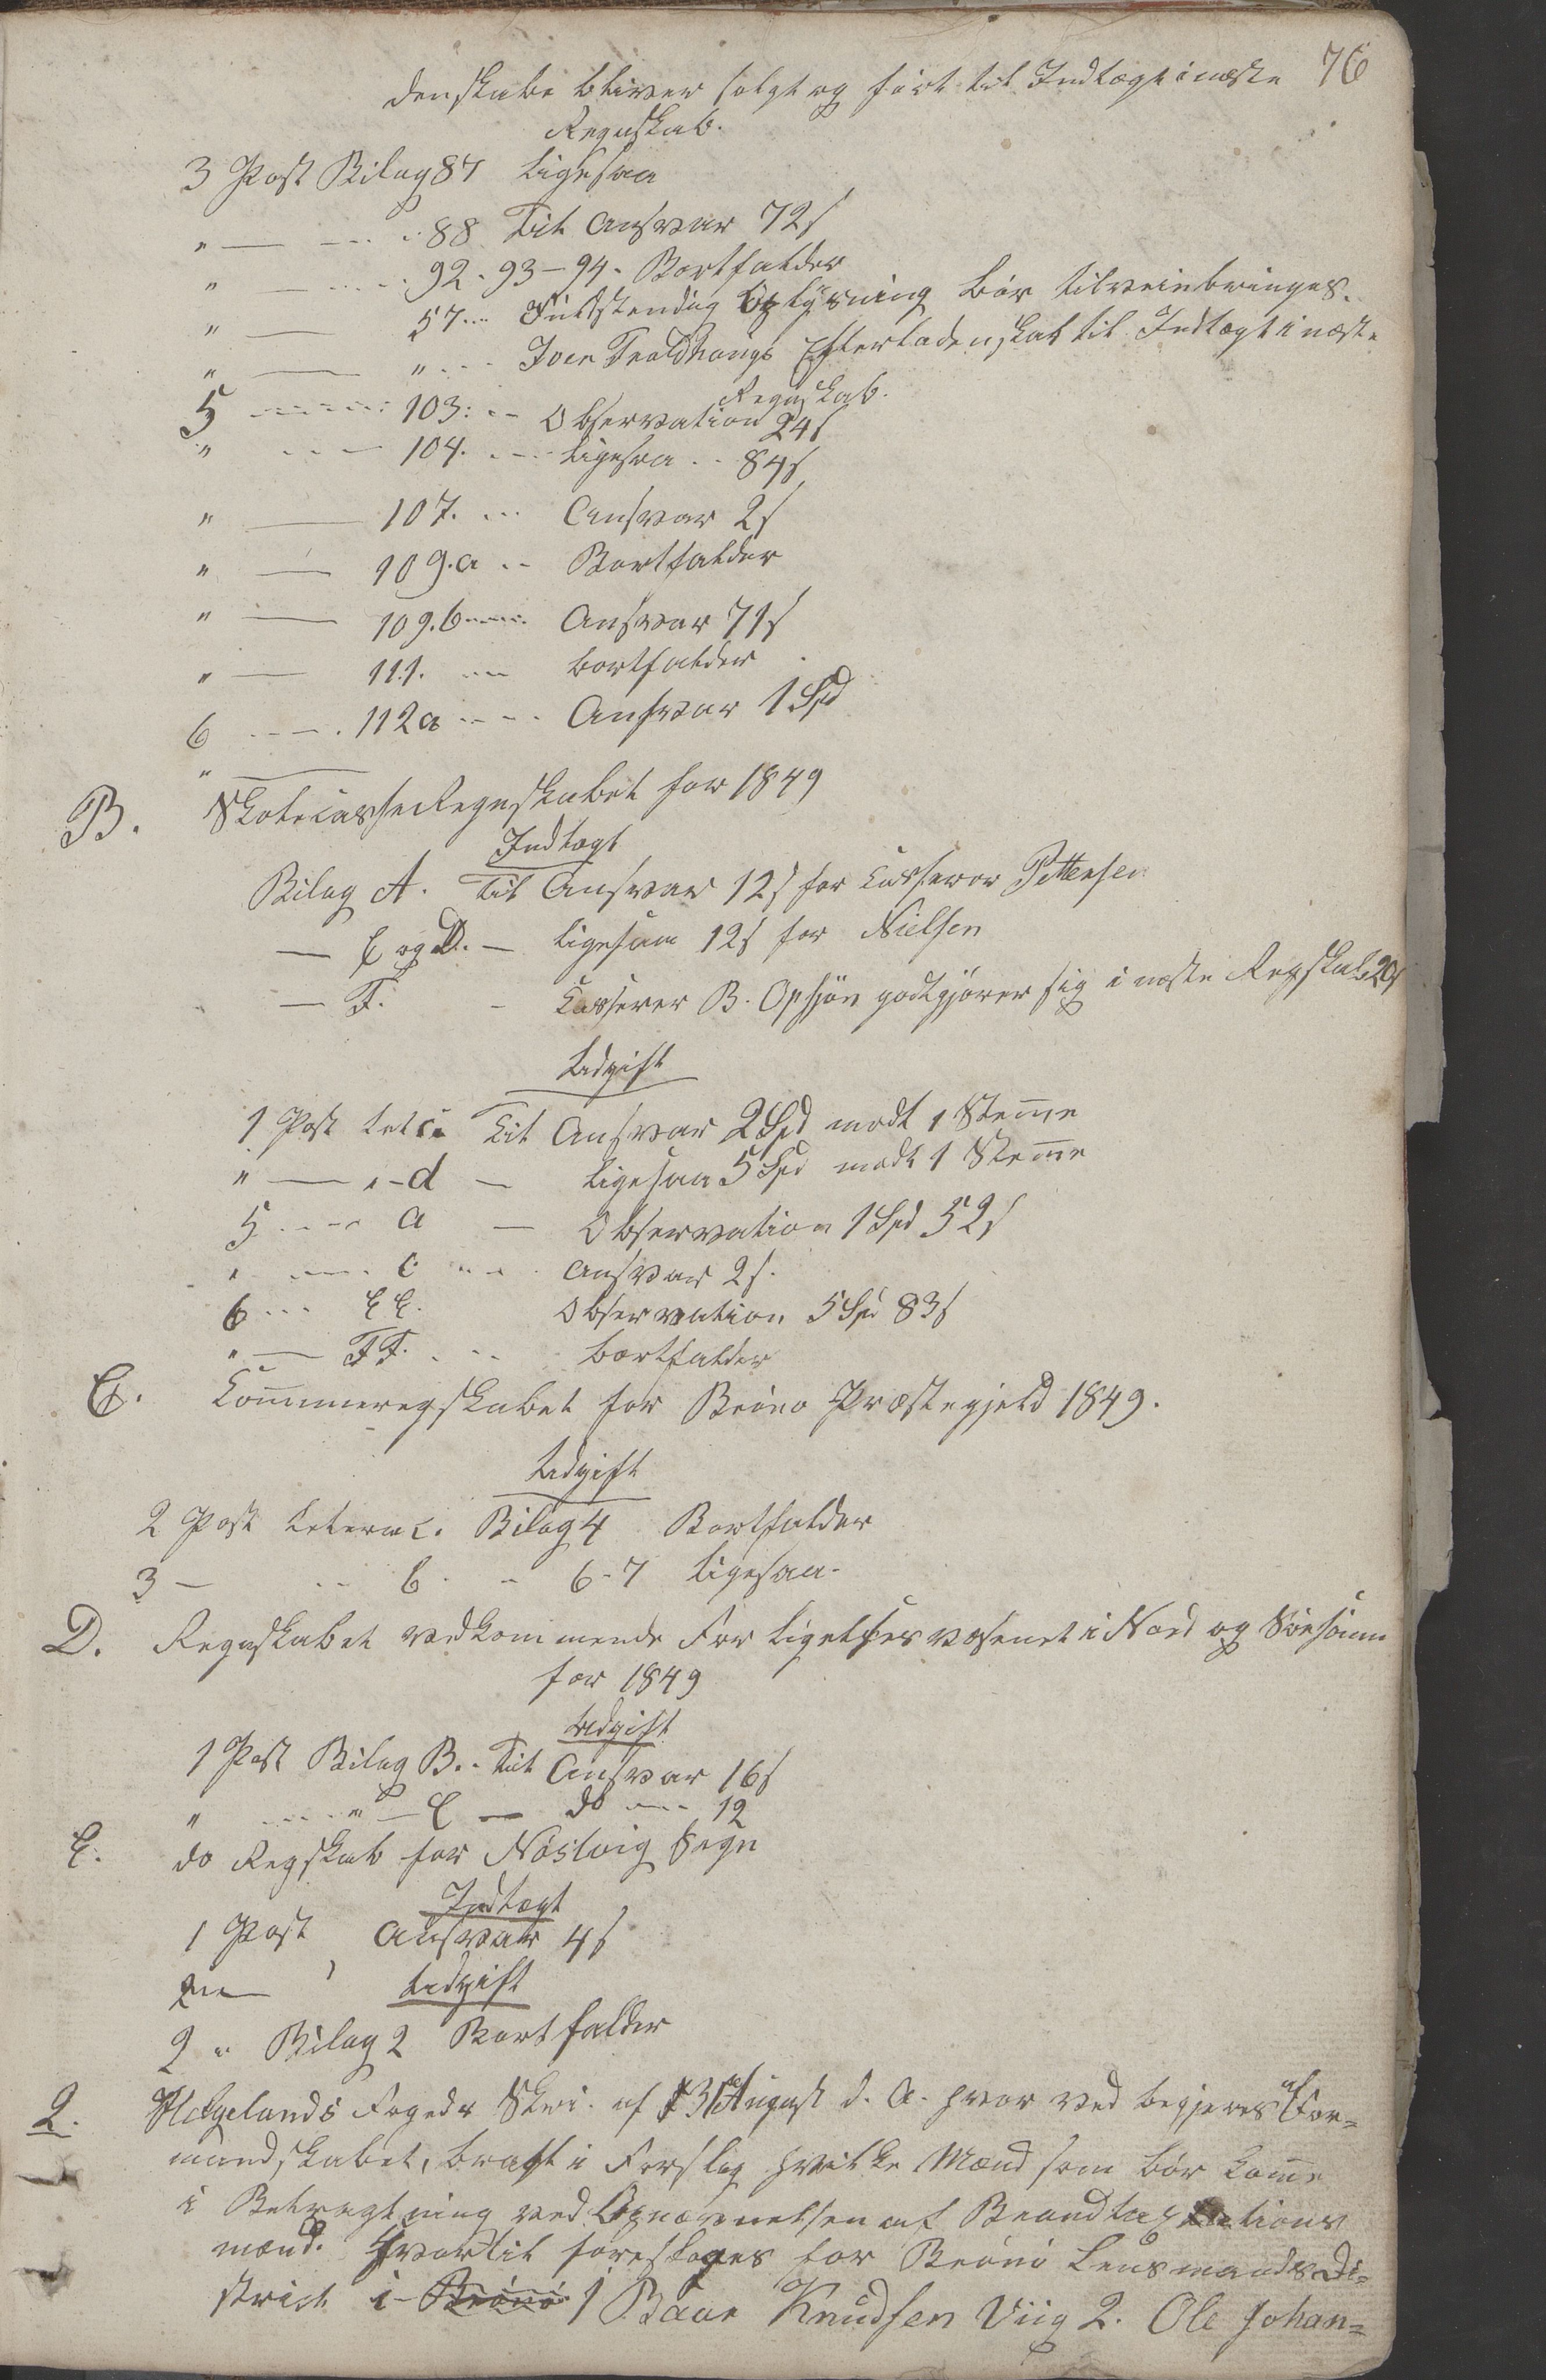 76
denskabe bliver solgt og ført til Indtægt i næste
Regnskab.
3 Post Bilag 87 ligesaa
" — — 88 Til Ansvar 72 s
" — — 92 - 93 - 94 - Bortfalder
" — 57 Fuldstendig Oplysning bør tilveiebringes.
" — " Efterladenskab til Indtægt i næste
Regnskab.
5 103: Observation 24 s
" 104. ligesaa 84 s
" — 107. Ansvar 2 s
" — 109.a Bortfalder
" — 109.b Ansvar 71 s
" — 111. bortfalder
6 112a Ansvar 1 Spd
" —
B. Skolecasse Regnskabet for 1849
Indtægt
Bilag A. Til Ansvar 12 s for Casserer Pettersen
— C og D. — ligesaa 12 s for Nielsen
— F. - Casserer B. Opsjøn godtgjører sig i næste Regskab 20 s
Udgift
1 Post Lit c. Til Ansvar 2 Spd modt 1 Stemme
" — " - d — ligesaa 5 Spd modt 1 Stemme
5 a — Observation 1 Spd 52 s
" c Ansvar 2 s.
6 EE. Observation 5 Spd 83 s
" — FF. bortfalder
C. Communeregskabet for Brönö Præstegjeld 1849.
Udgift
2 Post Litera c. Bilag 4 Bortfalder
3 — b - 6-7 ligesaa -
D. Regnskabet vedkommende Forligelsesvæsenet i Nord og Sörsömn
for 1849
Udgift
1 Post Bilag B. - Til Ansvar 16 s
" " — C — do 12
E. do Regskab for Nöstvig Sogn
Indtægt
1 Post Ansvar 4 s
Udgift
2 " Bilag 2 Bortfalder
2. Helgelands Fogeds Skri. af 31 August d. A. hvorved begjeres af For=
mandskabet, bragt i Forslag hvilke Mænd som bør komme
i Betragtning ved Opnævnelsen af Brandtaxations
mænd. Hvortil foreslages for Brönö Lensmands Di=
strict i Brönö 1 Baar Knudsen Viig 2. Ole Johan=